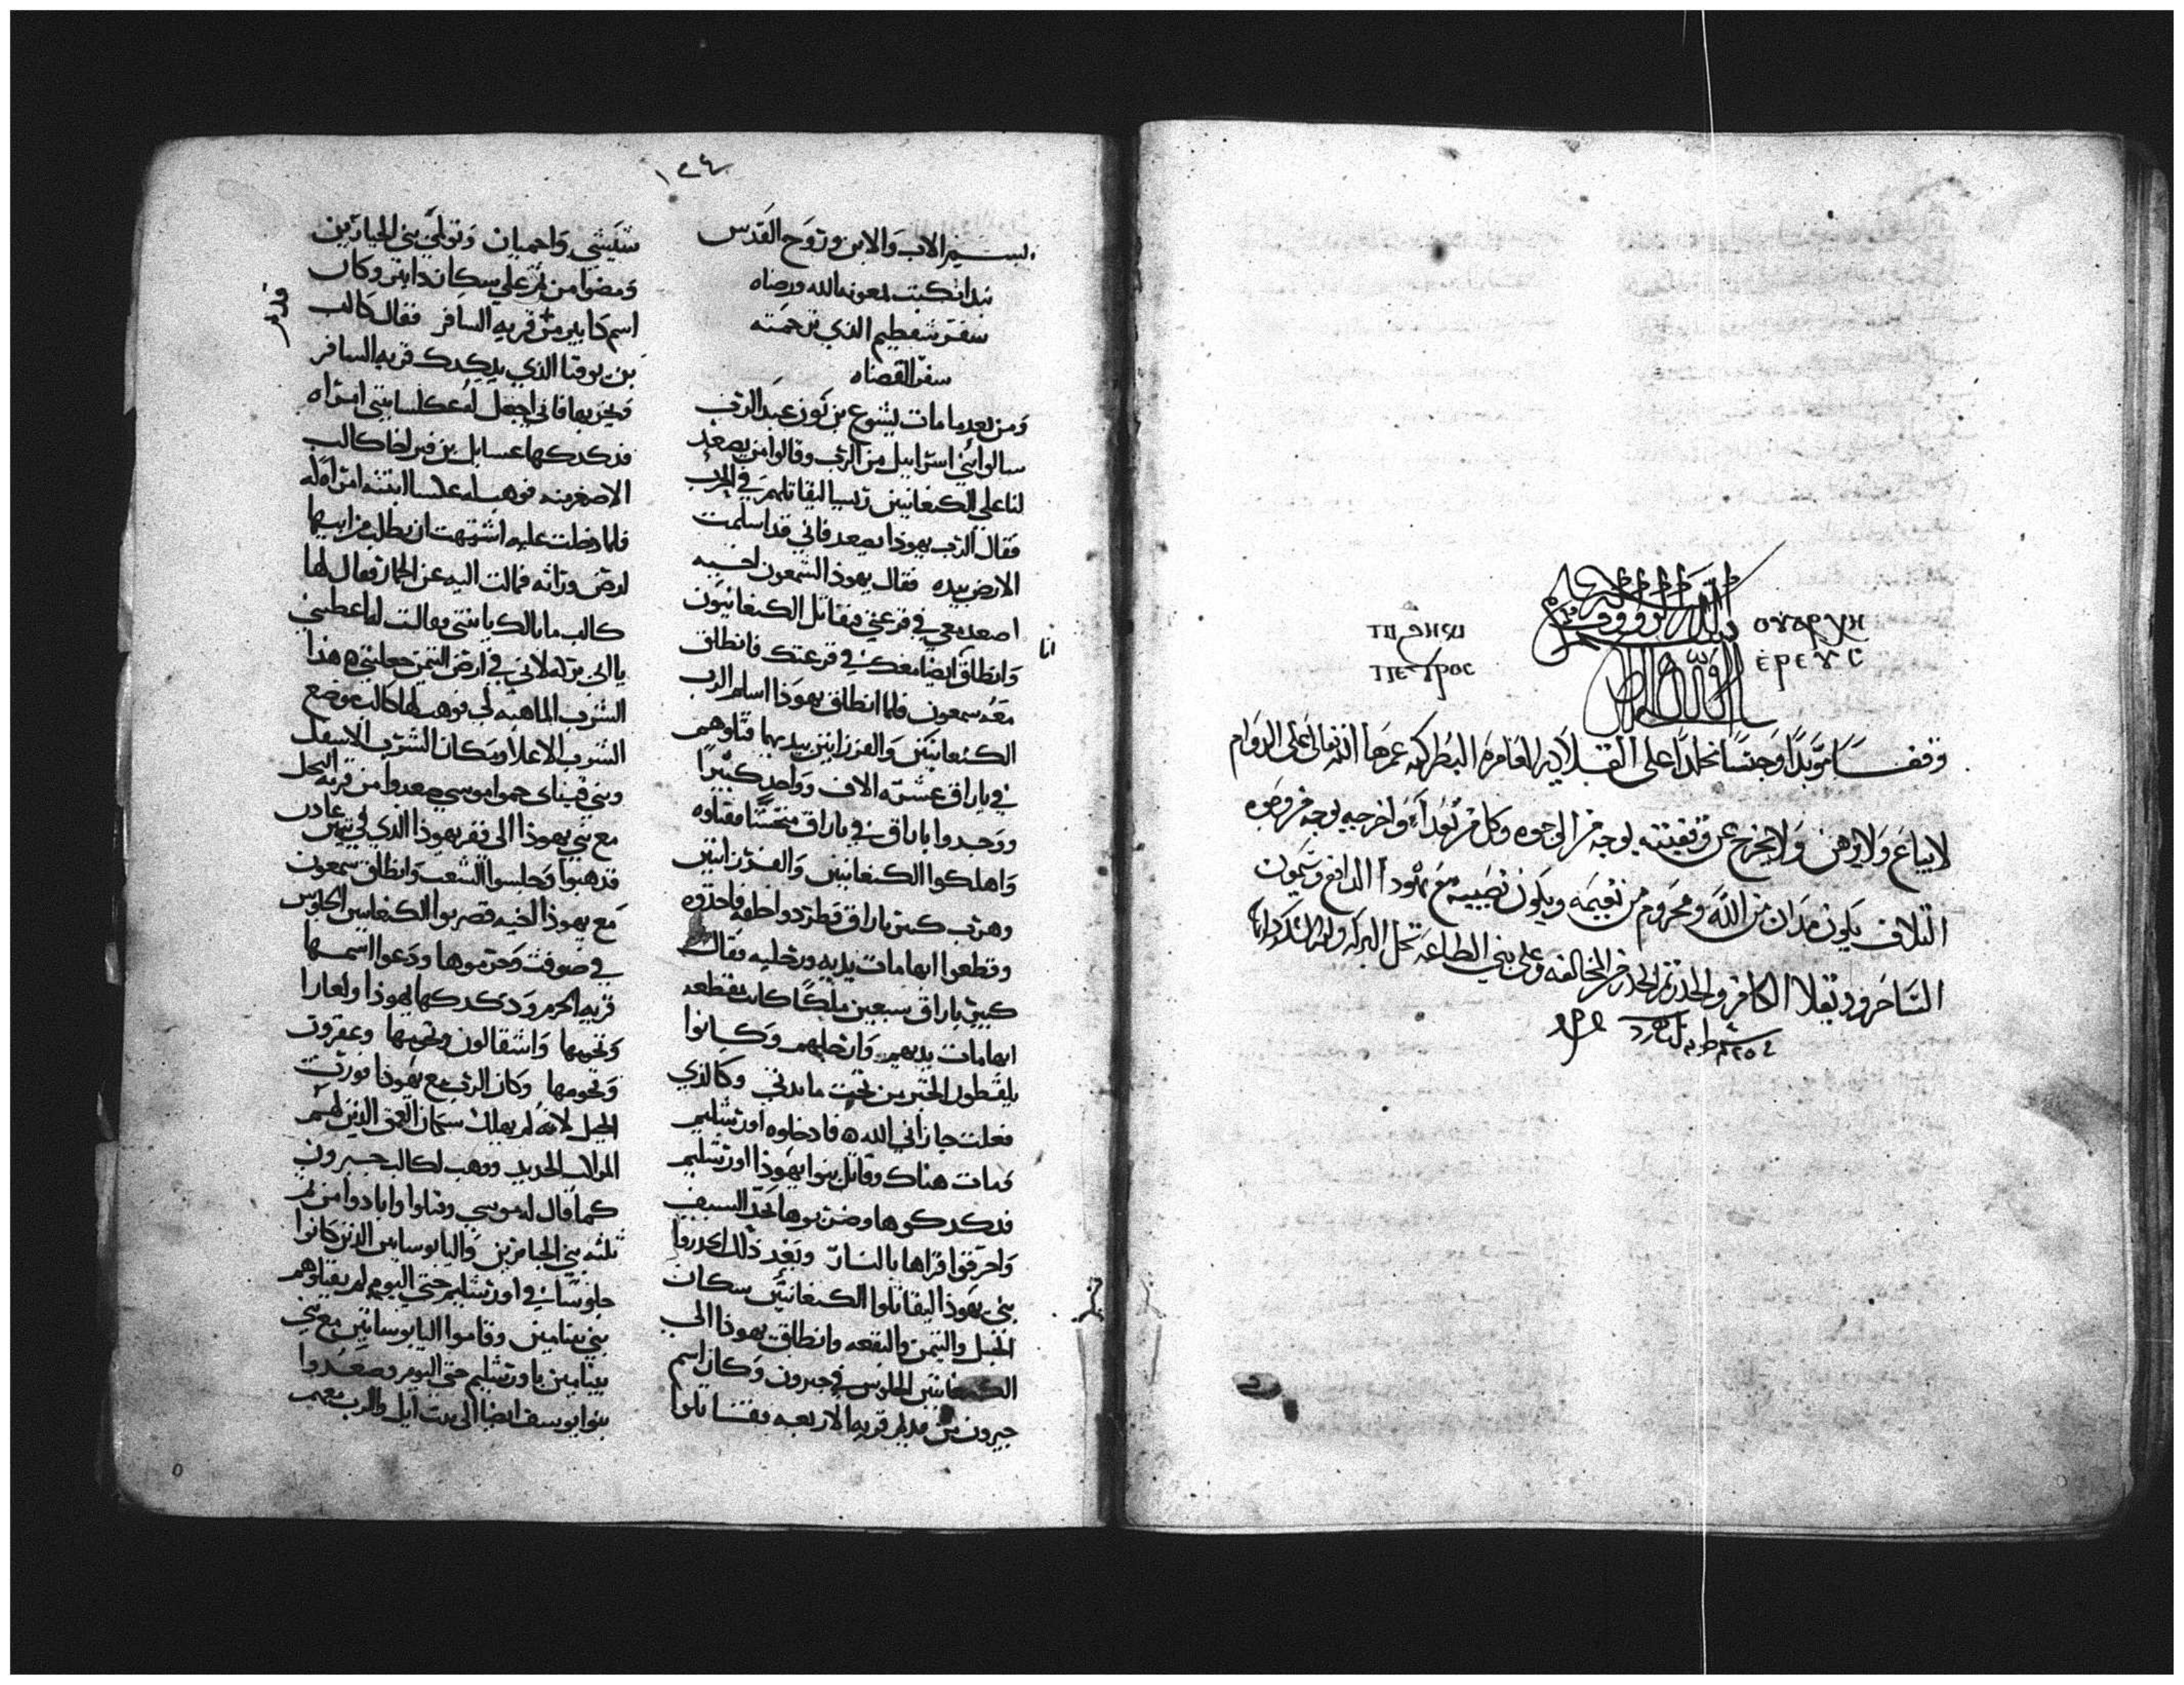 ⲟⲩⲁⲣⲭⲏ
ⲉⲣⲉⲩⲥ
ⲡⲉⲧⲣⲟⲥ
وقفا موبدا وحبسا مخلدا على القلايه العامره البطركيه عمرها الله تعالى على الدوام
لا يباع ولا يرهن ولا يخرج عن وقفيته بوجه من الوجوه وكل من تعدا واخرجه بوجه من وجوه
التلاف يكون مدان من الله ومحروم من نعيمه ويكون نصيبه مع يهودا الدافع وسيمون
الساحر ودقلا الكافر والحذر ثم الحذر من المخالفه وعلى بني الطاعه تحل البركه
١٣٤
بسم الاب والابن وروح القدس
نبدا نكتب بمعونة الله ورضاه
سفر شفطيم الذي ترجمته
سفر القضاه
ومن بعد ما مات يشوع بن نون عبد الرب
سالوا بني اسراييل من الرب وقالوا من يصعد
لنا على الكنعانيين رييسا ليقاتلهم في الحرب
فقال الرب يهوذا يصعد فاني قد اسلمت
الارض بيده فقال يهوذا لشمعون اخيه
اصعد معي في قرعتي فنقاتل الكنعانيون
انا
وانطلق ايضا معك في قرعتك فانطلق
معه سمعون فلما انطلق يهوذا اسلم الرب
الكنعانيين والفرزانيين بيديهما قتلوهم
في باراق عشرة الاف وواحد كبيرا
ووجدوا باراق في باراق فقتلوه
واهلكوا الكنعانيين والفرزانيين
وهرب كبير باراق فطردوا خلفه فاخذوه
وقطعوا ابهامات يديه ورجليه فقال
كبير باراق سبعين ملكا كانت مقطعه
ابهامات يديهم وارجلهم وكانوا
يلقطون الخبز من تحت مايدتي وكالذي
فعلت جازاني الله فادخلوه اورشليم
فمات هناك وقاتل بنوا يهوذا اورشليم
فدكدكوها وضربوها بحد السيف
واحرقوا قراها بالنار وبعد ذلك انحدروا
بني يهوذا ليقاتلوا الكنعانيين سكان
الجبل والتيمن والبقعه وانطلق يهوذا الى
الكنعانيين الجلوس في حبرون وكان اسم
حبرون من قديم قرية الاربعه فقتلوا
شيشي واحيمان وتولمي بني الجبارين
ومضوا من ثم على سكان دابير وكان
اسم دابير من قرية السافر فقال كالب
بن يوفنا الذي يدكدك قرية السافر
ويخربها فاني اجعل له عكسا بنتي امراه
فدكدكها عسايل بن قيز اخا كالب
الاصغر منه فوهب له عكسا ابنته امراه له
فلما دخلت عليه اشتهت ان يطلب من ابيها
ارض وراثه فمالت اليه عن الحمار فقال لها
كالب ما بالك يا بنتي فقالت له اعطيني
يا ابي بركه لاني في ارض التيمن جعلتني هذا
الشرب الما هبه لي فوهب لها كالب موضع
الشرب الاعلا ومكان الشرب الاسفل
وبني قيناي حموا موسي صعدوا من قرية النخل
مع بني يهوذا الى قفر يهوذا الذي في تيمن عادر
فذهبوا وجلسوا الشعب وانطلق سمعون
مع يهوذا اخيه فضربوا الكنعانيين الجلوس
في صوفت وحرموها ودعوا اسمها
قرية الحرم ودكدكها يهوذا ولعازا
وتخومها واشقالون وتخومها وعقرون
وتخومها وكان الرب مع يهوذا فورثت
الجبل لانه لم يهلك سكان العمق الذين لهم
الحديد ووهب لكالب حبرون
كما قال له موسي وقتلوا وابادوا من ثم
ثلثه بني الجبابره واليابوسانيين الذين كانوا
جلوسا في اورشليم حتى اليوم لم يقتلوهم
بني بنيامين وقاموا اليابوسانيين مع بني
بنيامين باورشليم حتى اليوم وصعدوا
بنوا يوسف ايضا الى بيت ايل والرب معهم